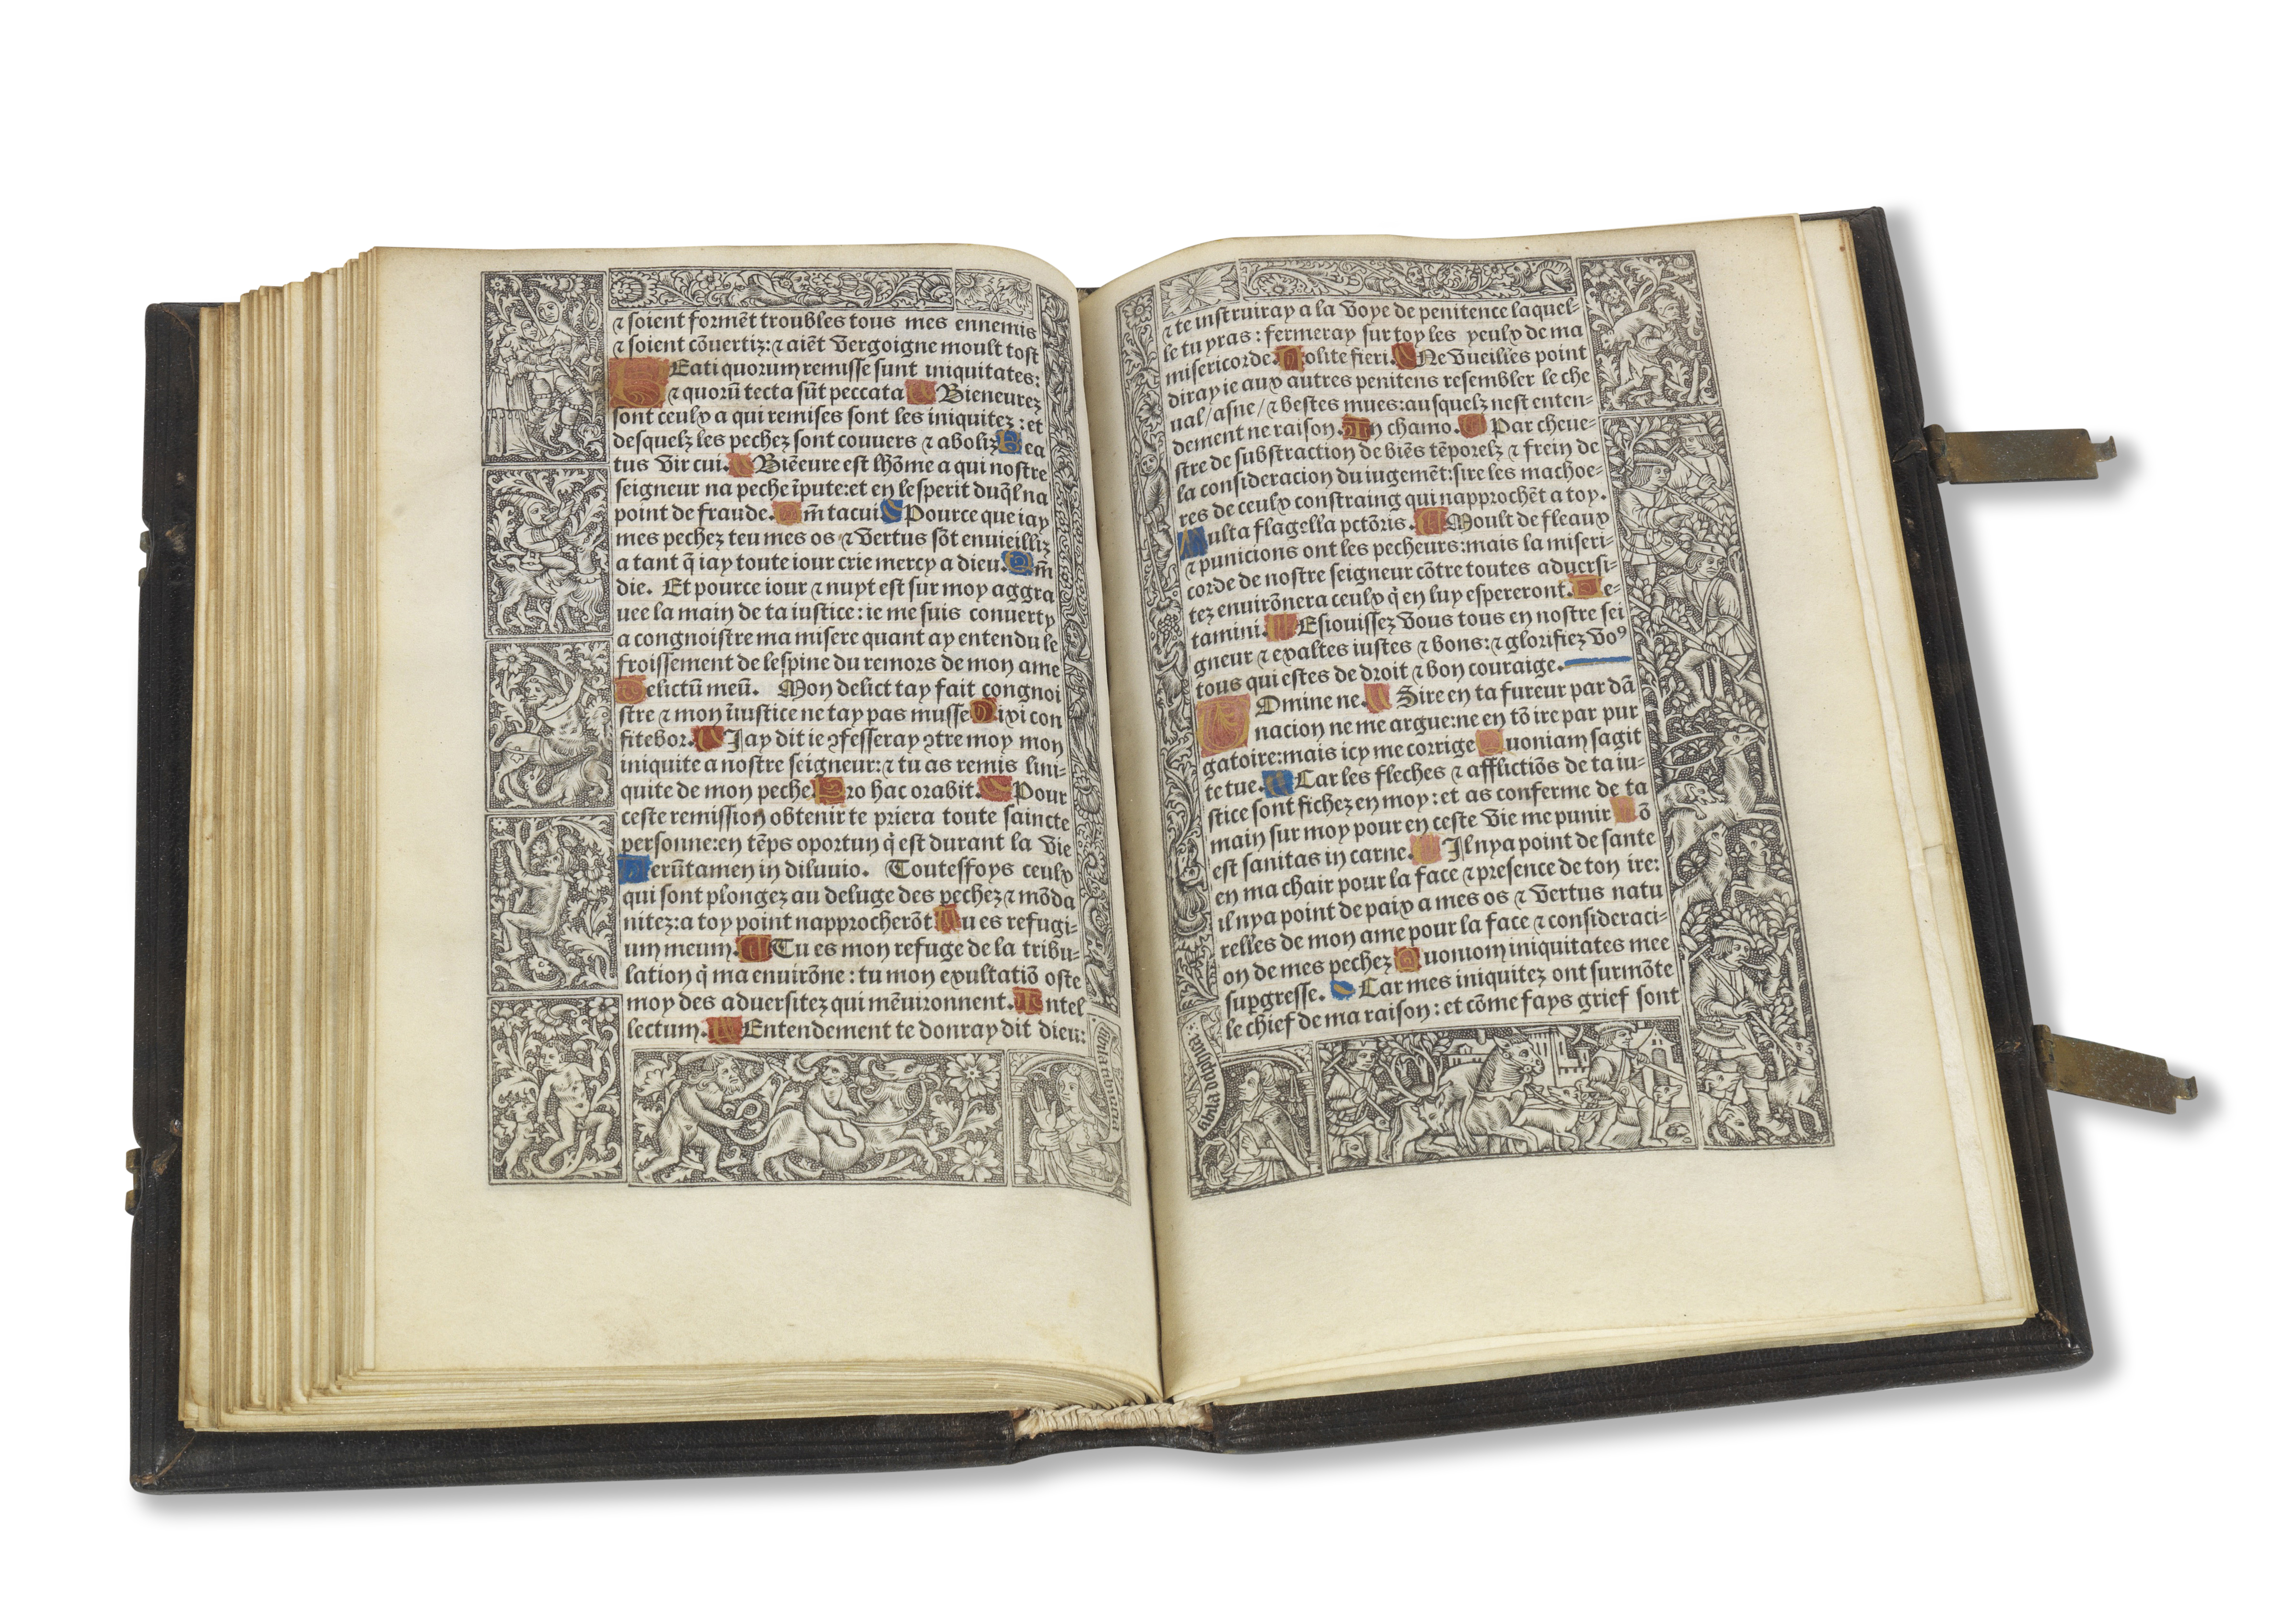 ⁊ soient formẽt troubles tous mes ennemis
⁊ soient cõuertiz: ⁊ aiẽt vergoigne moult tost
Beati quorum remisse sunt iniquitates:
⁊ quorũ tecta sũt peccata Bieneurez
sont ceulx a qui remises sont les iniquitez: et
desquelz les pechez sont couuers ⁊ aboliz Bea
tus vir cui. Biẽeure est lhõme a qui nostre
seigneur na peche ĩpute: et en lesperit duq̃l na
point de fraude. Qm̃ tacui Pource que iay
mes pechez teu mes os ⁊ vertus sõt enuieilliz
a tant q̃ iay toute iour crie mercy a dieu. Qm̃
die. Et pource iour ⁊ nuyt est sur moy aggra
uee la main de ta iustice: ie me suis conuerty
a congnoistre ma misere quant ay entendu le
froissement de lespine du remors de mon ame
Delictũ meũ. Mon delict tay fait congnoi
stre ⁊ mon iniustice ne tay pas musse Dixi con
fitebor. Jay dit ie ꝯfesseray ꝯtre moy mon
iniquite a nostre seigneur: ⁊ tu as remis lini-
quite de mon peche Pro hac orabit. Pour
ceste remission obtenir te priera toute saincte
personne: en tẽps oportun q̃ est durant la vie
Verũtamen in diluuio. Touteffoys ceulx
qui sont plongez au deluge des pechez ⁊ mõda
nitez: a toy point napprocherõt Tu es refugi-
um meum. Tu es mon refuge de la tribu-
lation q̃ ma enuirõne: tu mon exultatiõ oste
moy des aduersitez qui mẽuironnent. Intel
lectum. Entendement te donray dit dieu:
sibila tiburtina
⁊ te instruiray a la voye de penitence laquel-
le tu yras: fermeray sur toy les yeulx de ma
misericorde. Nolite fieri. Ne vueilles point
diray ie aux autres penitens resembler le che
ual/ asne/ ⁊ bestes mues: ausquelz nest enten-
dement ne raison. In chamo. Par cheue-
stre de substraction de biẽs tẽporelz ⁊ frein de
la consideracion du iugemẽt: sire les machoe-
res de ceulx constraing qui napprochẽt a toy.
Multa flagella pctõris. Moult de fleaux
⁊ punicions ont les pecheurs: mais la miseri-
corde de nostre seigneur cõtre toutes aduersi-
tez enuirõnera ceulx q̃ en luy espereront. Le-
tamini. Esiouissez vous tous en nostre sei
gneur ⁊ exaltes iustes ⁊ bons: ⁊ glorifiez voꝰ
tous qui estes de droit ⁊ bon couraige.
Domine ne. Sire en ta fureur par dã
nacion ne me argue: ne en tõ ire par pur
gatoire: mais icy me corrige Quoniam sagit
te tue. Car les fleches ⁊ afflictiõs de ta iu-
stice sont fichez en moy: et as conferme de ta
main sur moy pour en ceste vie me punir Nõ
est sanitas in carne. Il nya point de sante
en ma chair pour la face ⁊ presence de ton ire:
il nya point de paix a mes os ⁊ vertus natu
relles de mon ame pour la face ⁊ consideraci-
on de mes pechez Quoniom iniquitates mee
supgresse. Car mes iniquitez ont surmõte
le chief de ma raison: et cõme fays grief sont